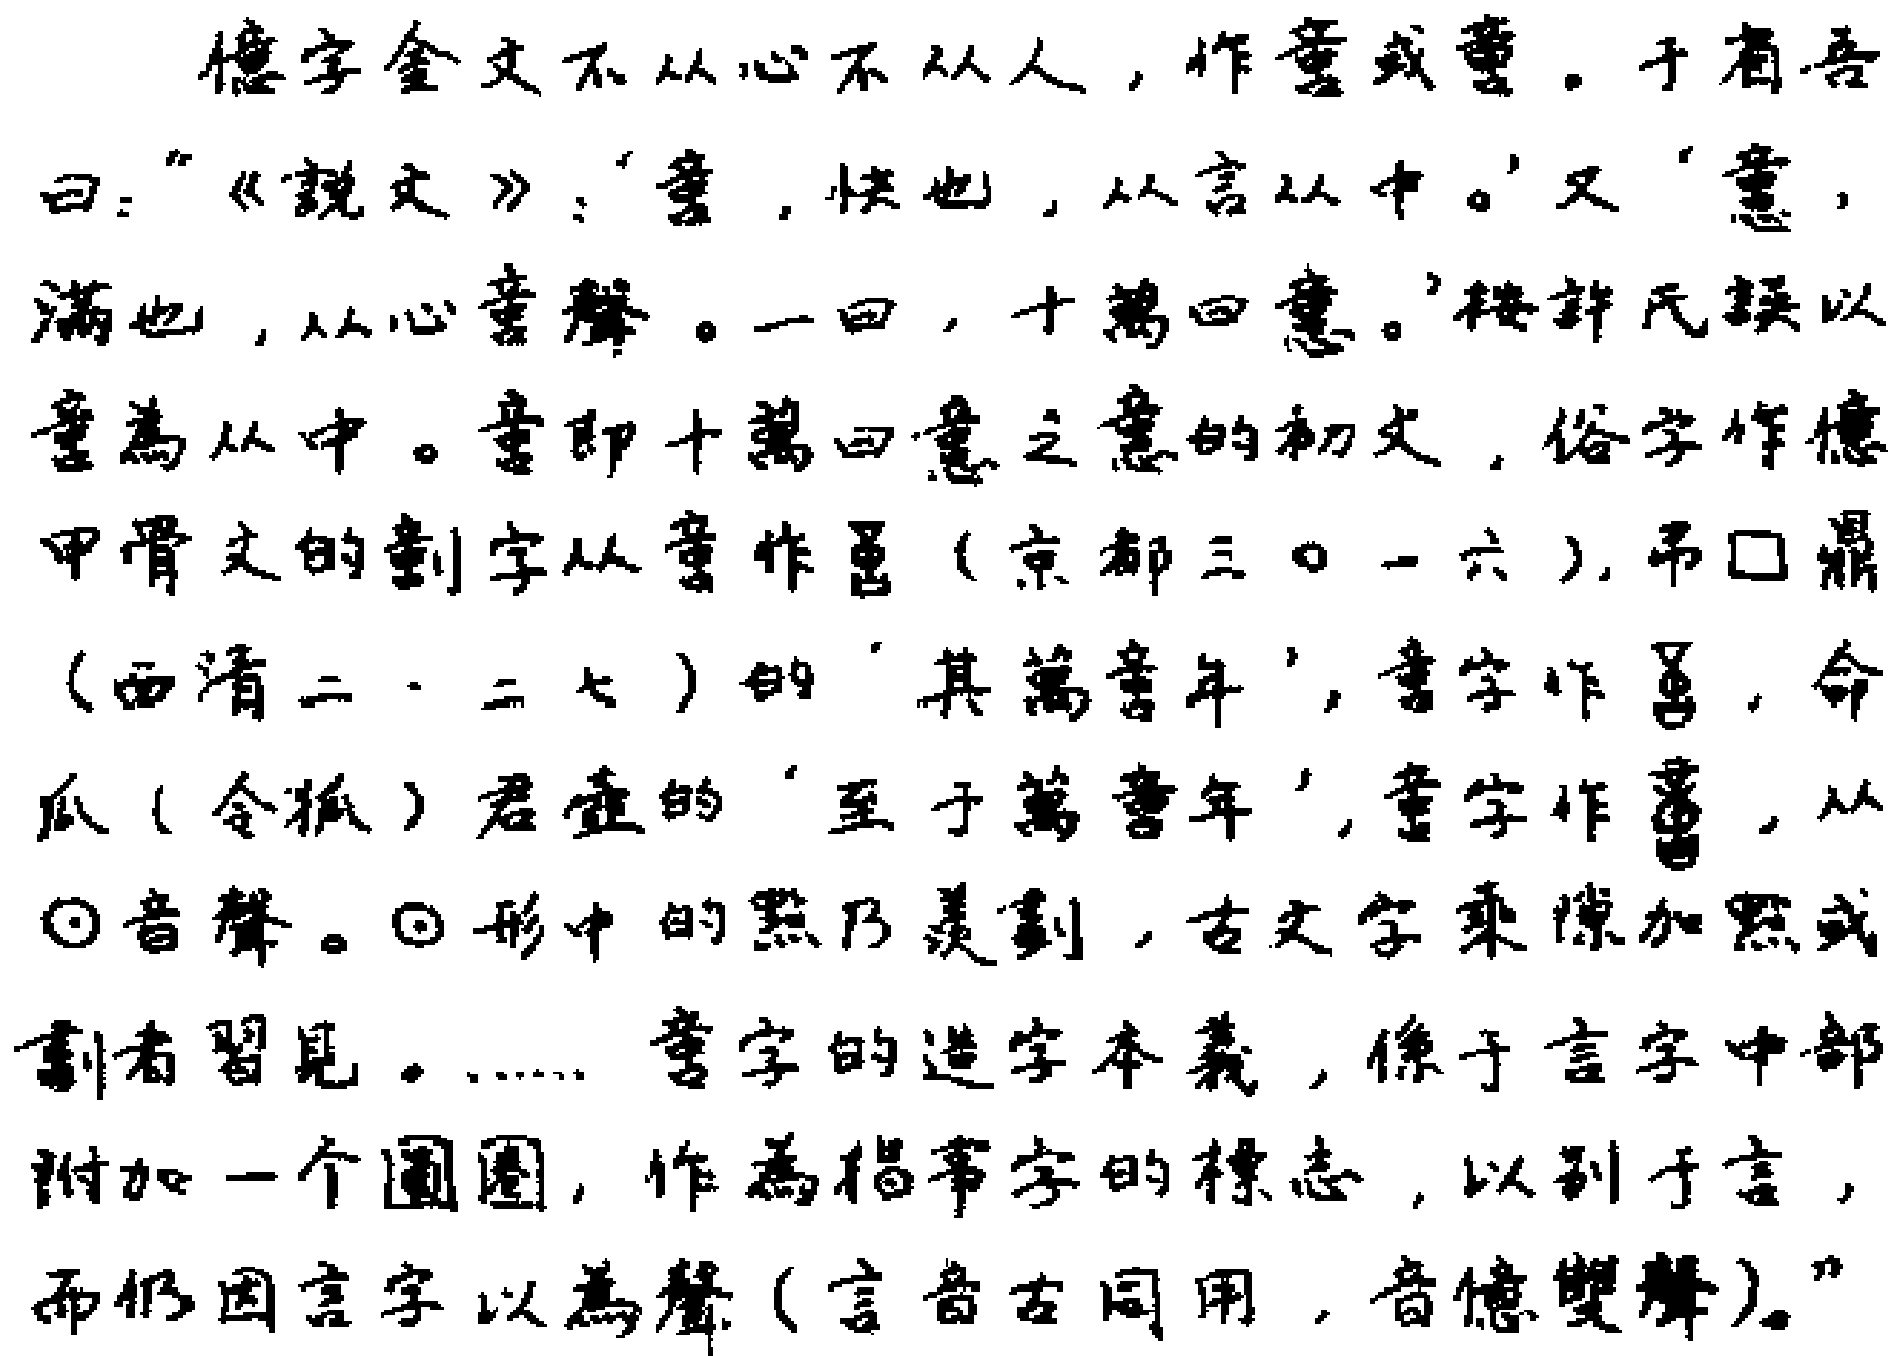 憶字金文不从心不从人，作𠶷或𠶷。于省吾
曰：“《説文》：‘𠶷，快也，从言从中。’又‘意，
滿也，从心𠶷聲。一曰，十萬曰意。’按許氏誤以
𠶷為从中。𠶷即十萬曰意之意的初文，俗字作憶
甲骨文的劃字从𠶷作（京都三〇一六），弔□鼎
（西清二·二七）的‘其萬𠶷年’，𠶷字作，命
瓜（令狐）君壺的‘至于萬𠶷年’，𠶷字作，从
⊙音聲。⊙形中的點乃羨劃，古文字乘隙加點或
劃者習見。……𠶷字的造字本義，係于言字中部
附加一个圓圈，作為指事字的標志，以别于言，
而仍因言字以為聲（言音古同用，音憶雙聲）。”